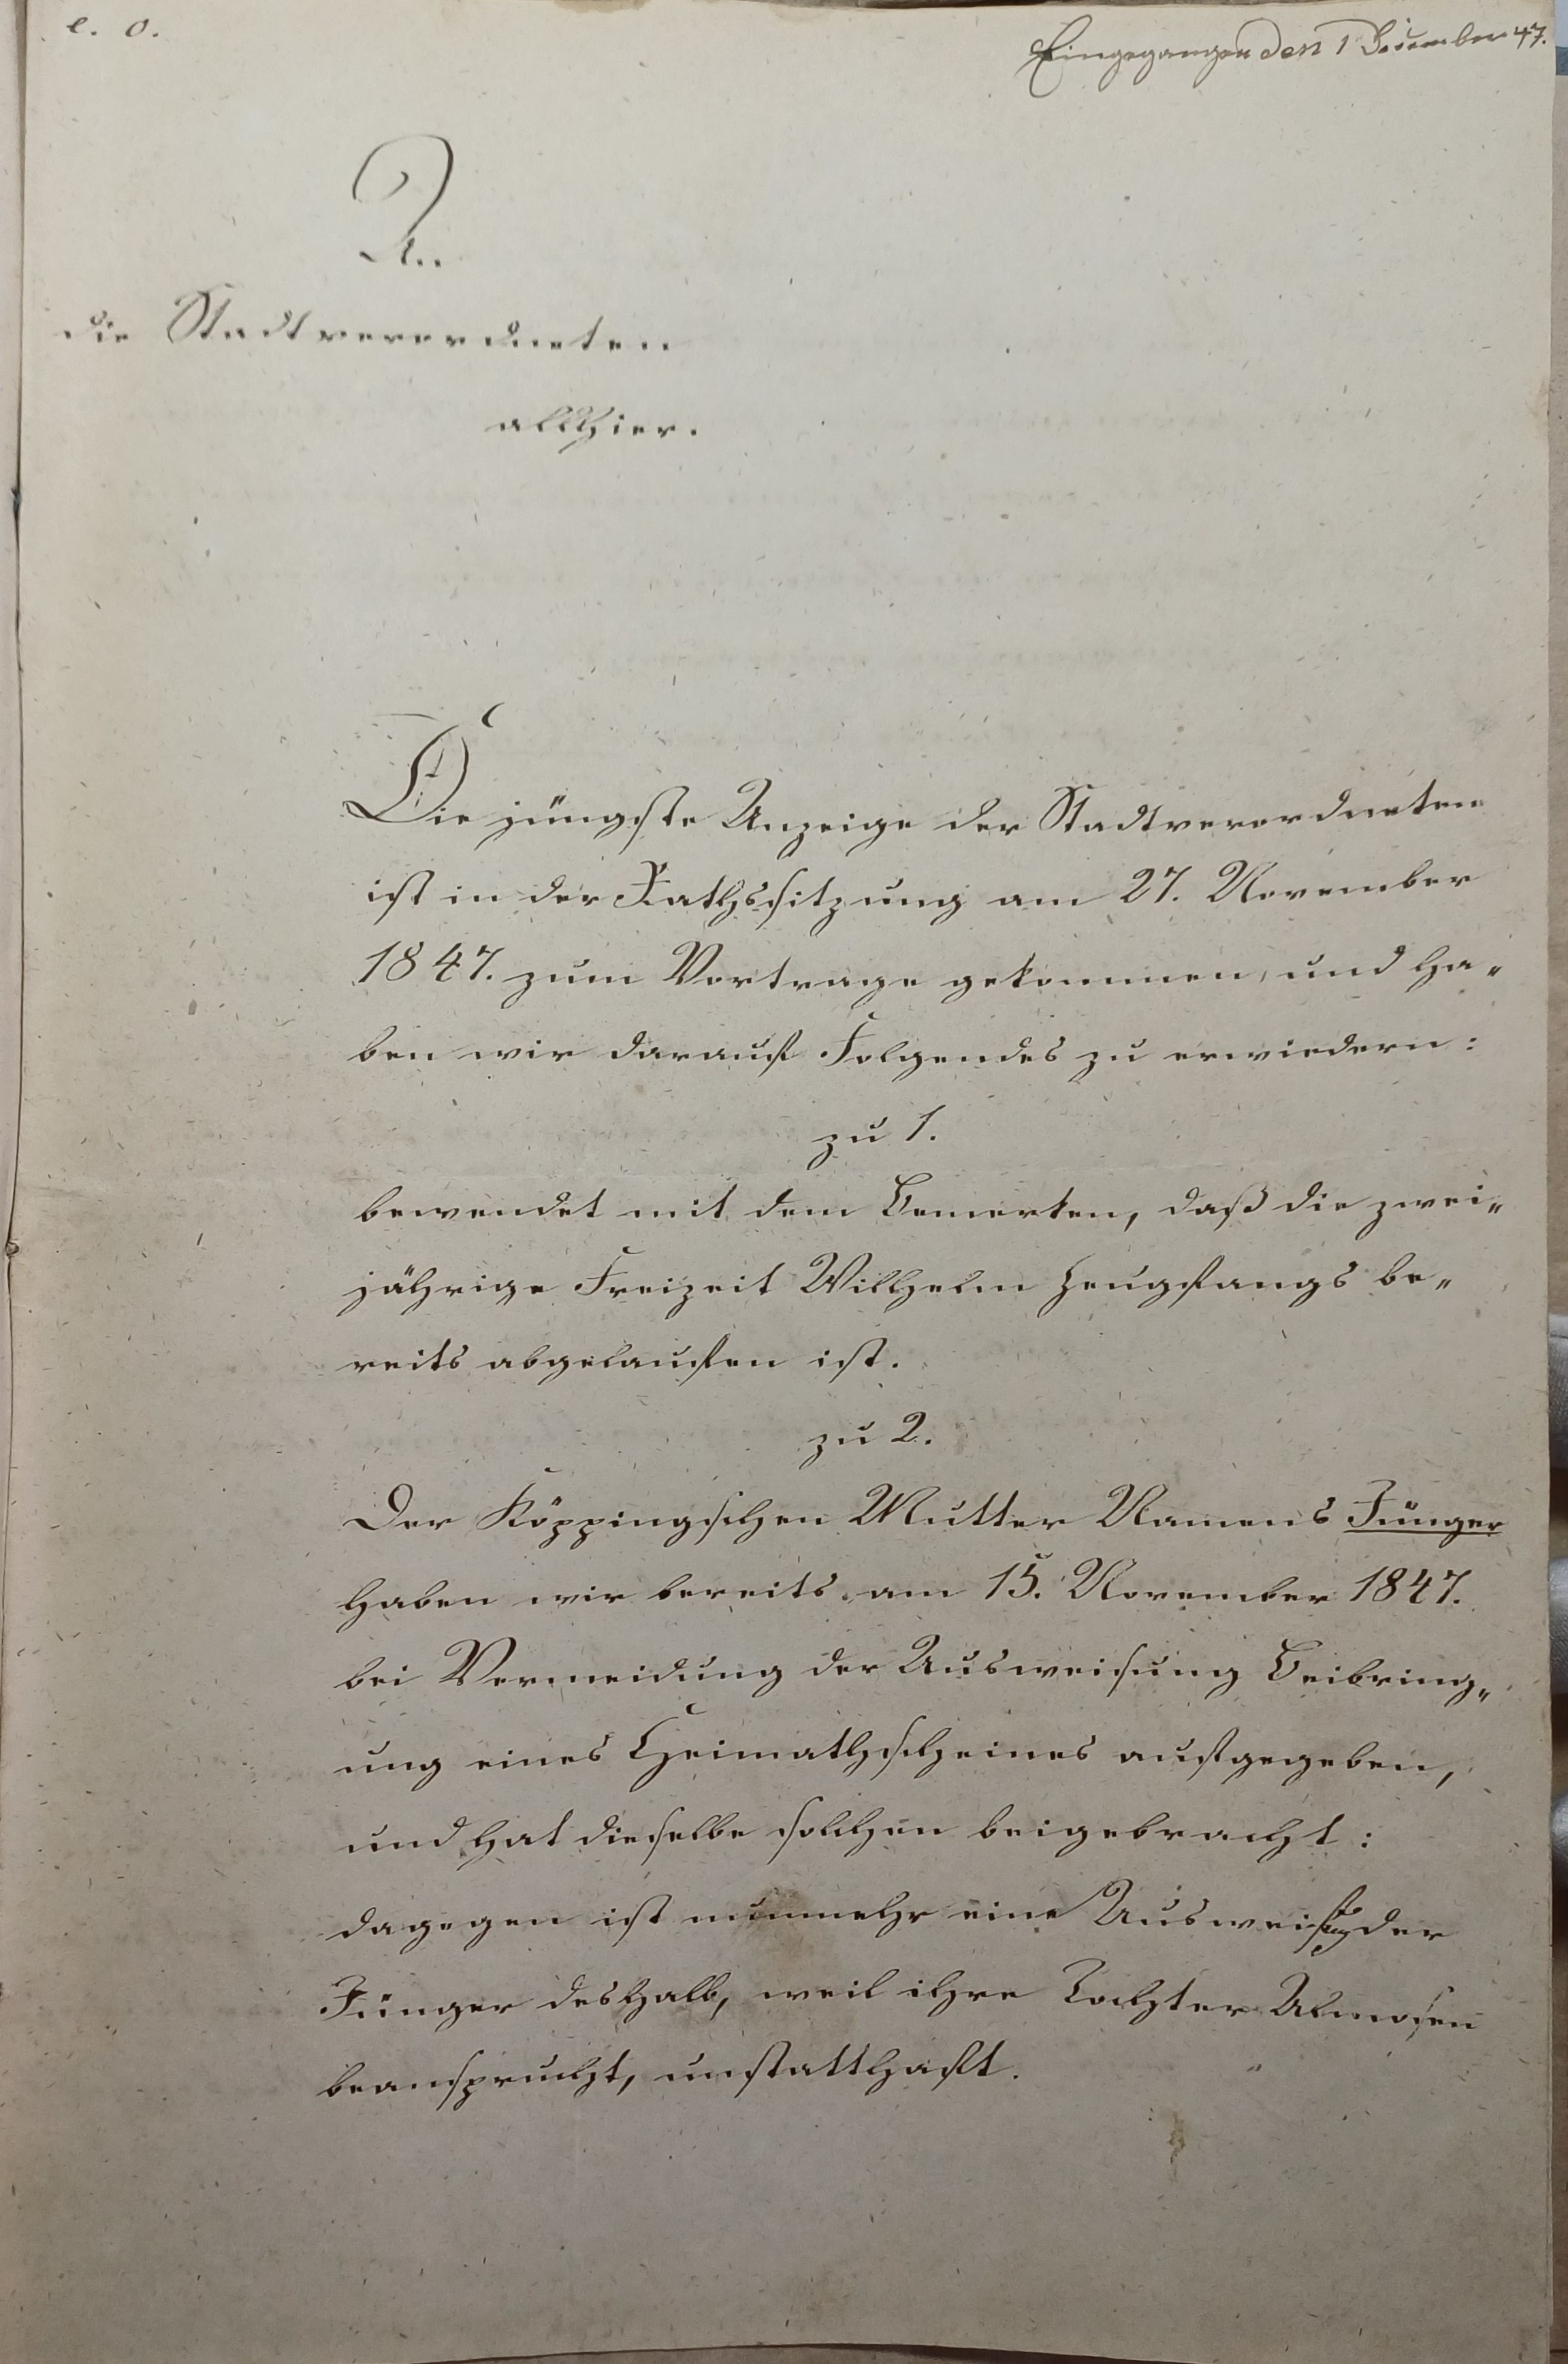 e. o.
Eingegangen den 1 December 47.
An
die Stadtverordneten
allhier.
Die jüngste Anzeige der Stadtverordneten
ist in der Rathssitzung am 27. November
1847. zum Vortrage gekommen, und ha„
ben wir darauf Folgendes zu erwiedern:
zu 1.
bewendet mit dem Bemerken, daß die zwei„
jährige Freizeit Wilhelm Heugfangs be„
reits abgelaufen ist.
zu 2.
Der Köppingschen Mutter Namens Jünger
haben wir bereits am 15. November 1847.
bei Vermeidung der Ausweisung Beibring„
ung eines Heimathscheines aufgegeben,
und hat dieselbe solchen beigebracht:
dagegen ist nunmehr eine Ausweisung der
Jünger deshalb, weil ihre Tochter Almosen
beansprucht, unstatthaft.